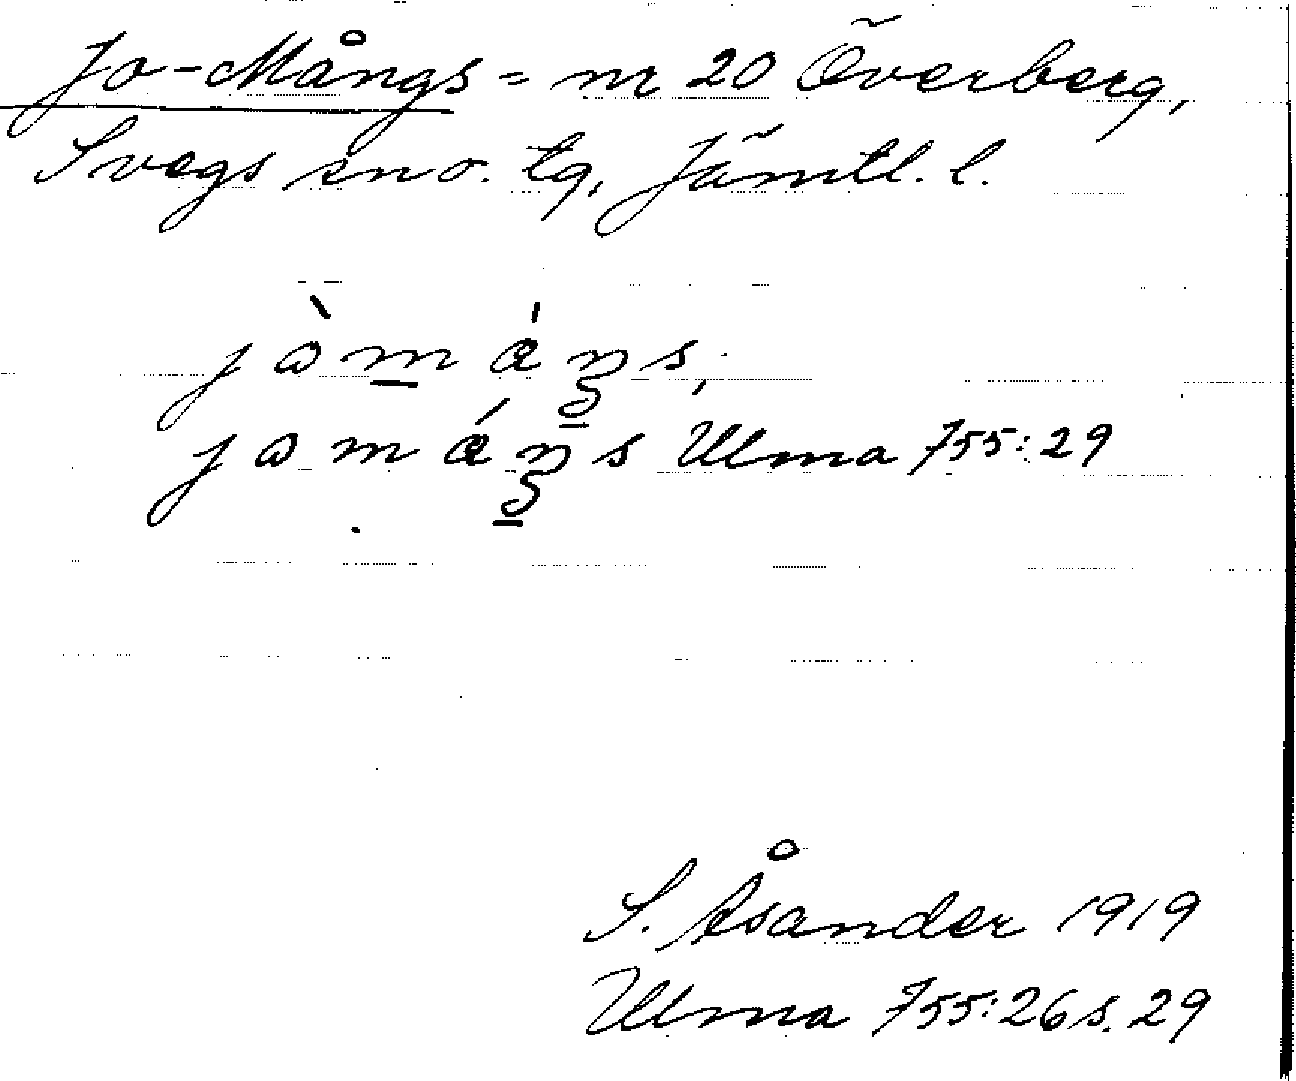 Jo-Mångs = nr 20 Överberg,
Svegs sn o. tg, Jämtl. l.
jòmáŋs,
jomáŋs Ulma 755:29
S. Åsander 1919
Ulma 755:26 s. 29